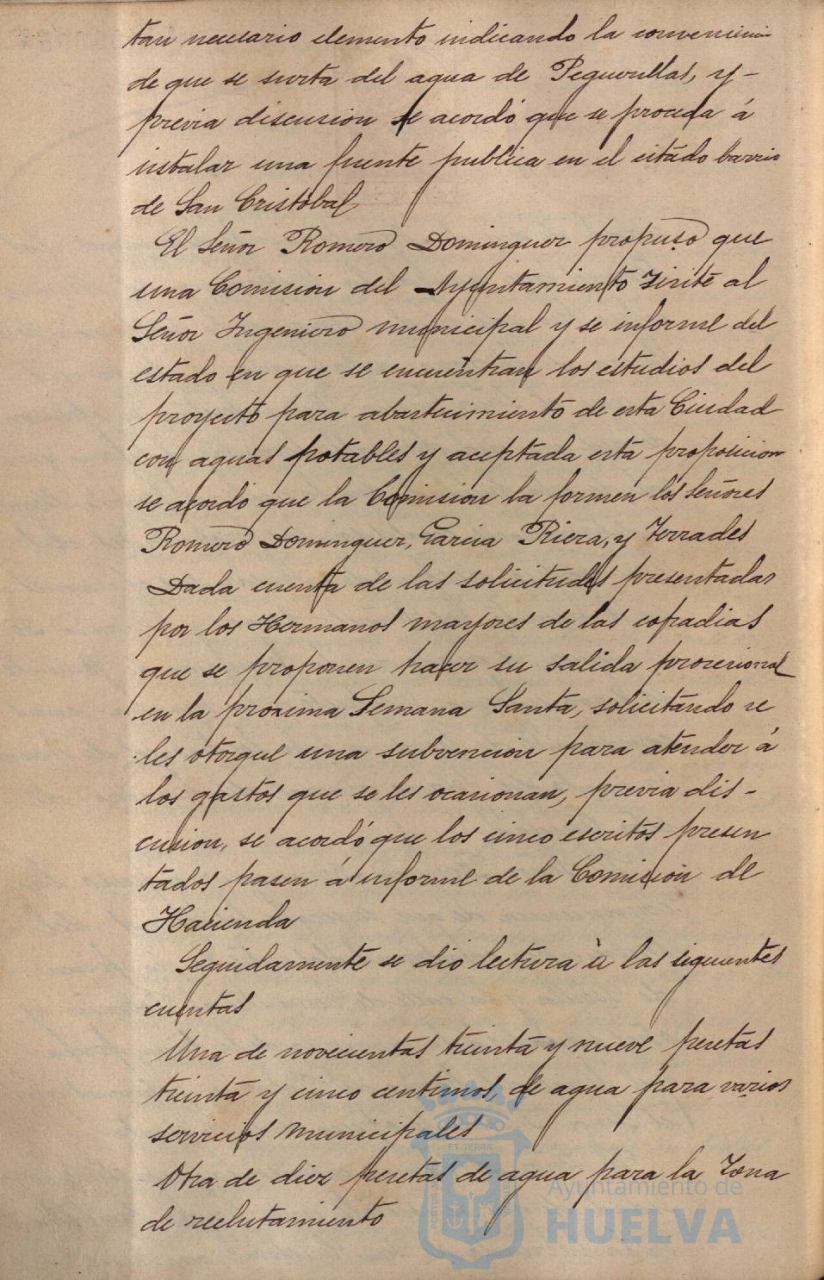 tan necesario elemento indicando la conveniencia
de que se surta del agua de Peguerillas, y-
previa discusion se acordó que se proceda á
instalar una fuente publica en el citado barrio
de San Cristobal
El Señor Romero Dominguez propuso que
una Comision del Ayuntamiento visite al
Señor Ingeniero municipal y se informe del
estado en que se encuentran los estudios del
proyecto para abastecimiento de esta Ciudad
con aguas potables y aceptada esta proposicion
se acordó que la Comision la formen los Señores
Romero Dominguez, Garcia Riera, y Terrades
Dada cuenta de las solicitudes presentadas
por los Hermanos mayores de las cofradias
que se proponen hacer su salida procesional
en la proxima Semana Santa, solicitando se
les otorgue una subvencion para atender á
los gastos que se les ocasionan, previa dis-
cusion, se acordó que los cinco escritos presen
tados pasen á informe de la Comision de
Hacienda
Seguidamente se dio lectura à las siguientes
cuentas
Una de novecientas treinta y nueve pesetas
treinta y cinco centimos, de agua para varios
servicios municipales
Otra de diez pesetas de agua para la Zona
de reclutamiento
Ayuntamiento de
HUELVA